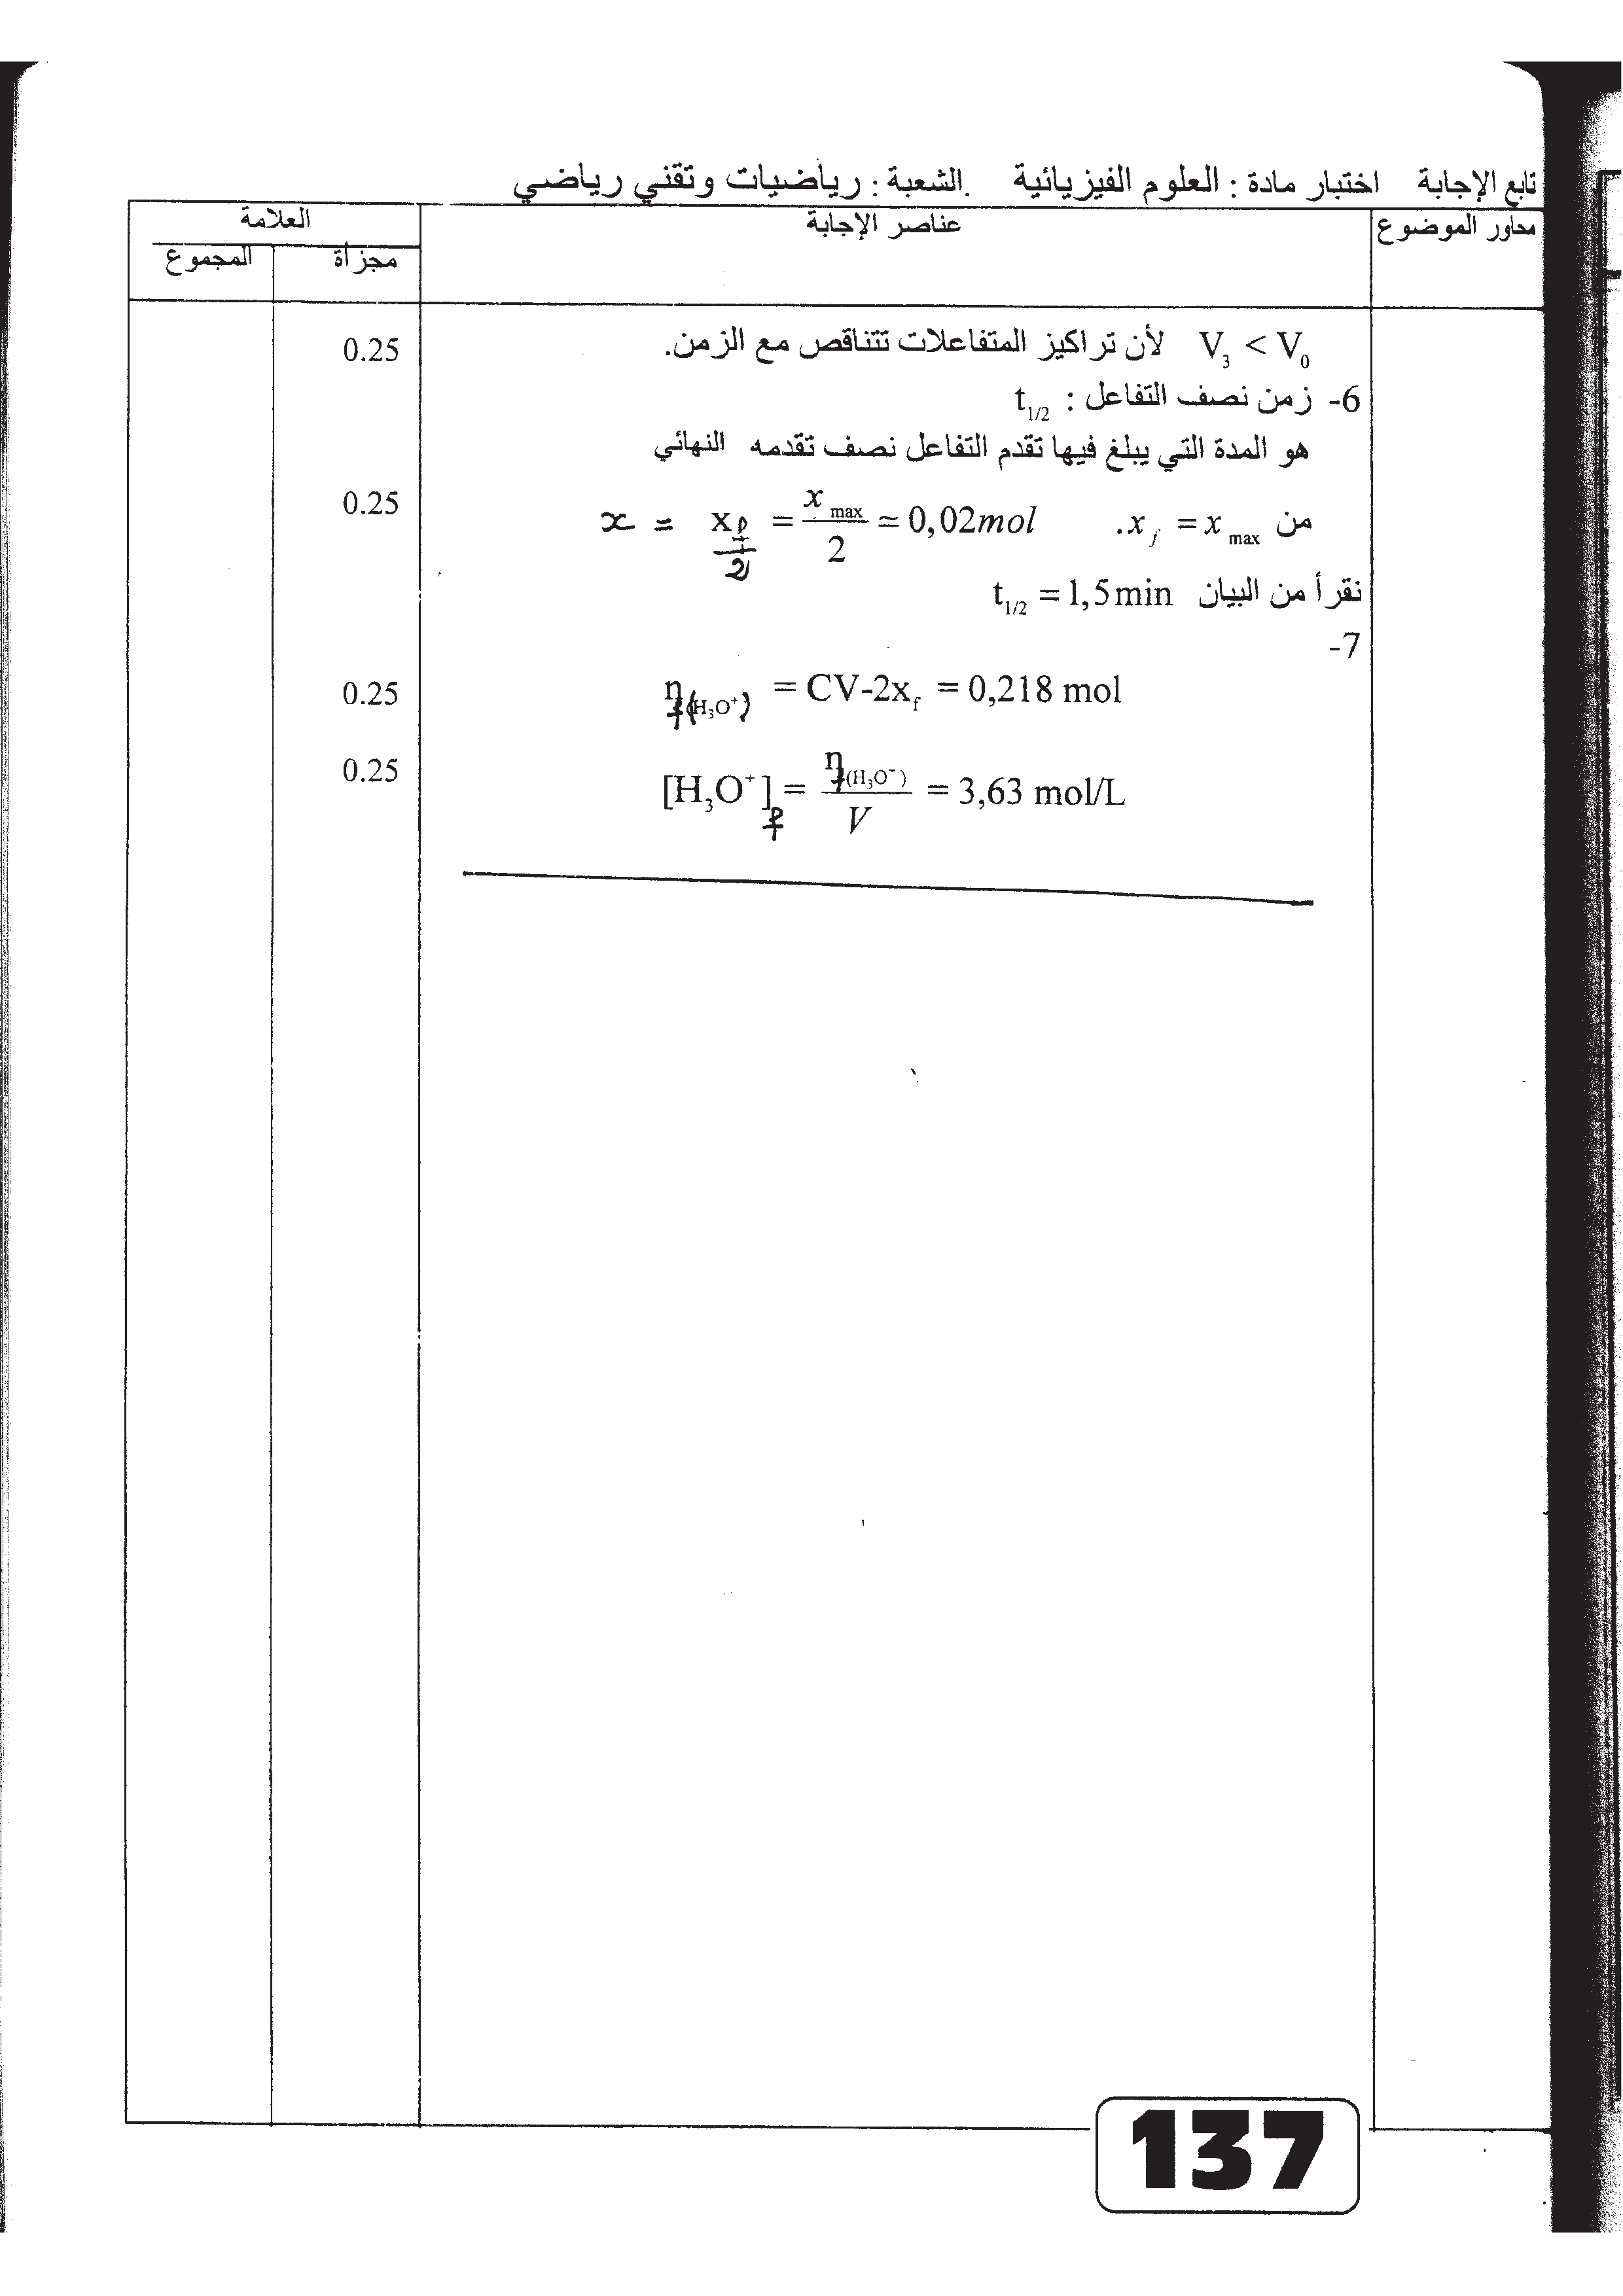 تابع الإجابة اختبار مادة : العلوم الفيزيائية .الشعبة : رياضيات وتقني رياضي
محاور الموضوع عناصر الإجابة العلامة
مجزأة المجموع
V₃ < V₀ لأن تراكيز المتفاعلات تتناقص مع الزمن. 0.25
6- زمن نصف التفاعل : t₁/₂
هو المدة التي يبلغ فيها تقدم التفاعل نصف تقدمه النهائي
من x_f = x_max. x = x_f/2 = x_max/2 ≃ 0,02mol 0.25
نقرأ من البيان t₁/₂ = 1,5min
7-
η_f(H₃O⁺) = CV-2x_f = 0,218 mol 0.25
[H₃O⁺]_f = η_f(H₃O⁺)/V = 3,63 mol/L 0.25
137